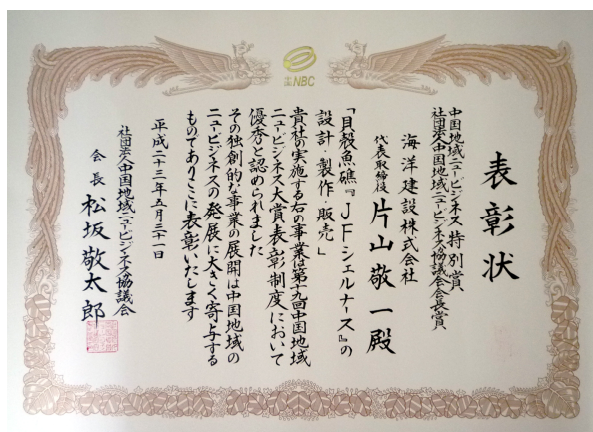 中国NBC
表彰状
中国地域ニュービジネス特別賞
社団法人中国地域ニュービジネス協議会会長賞
海洋建設株式会社
代表取締役 片山敬一殿
「貝殻魚礁『JFシェルナース』の
設計・製作・販売」
貴社の実施する右の事業は第十九回中国地域
ニュービジネス大賞表彰制度において
優秀と認められました
その独創的な事業の展開は中国地域の
ニュービジネスの発展に大きく寄与する
ものでありここに表彰いたします
平成二十三年五月三十一日
社団法人中国地域ニュービジネス協議会
会長 松坂敬太郎